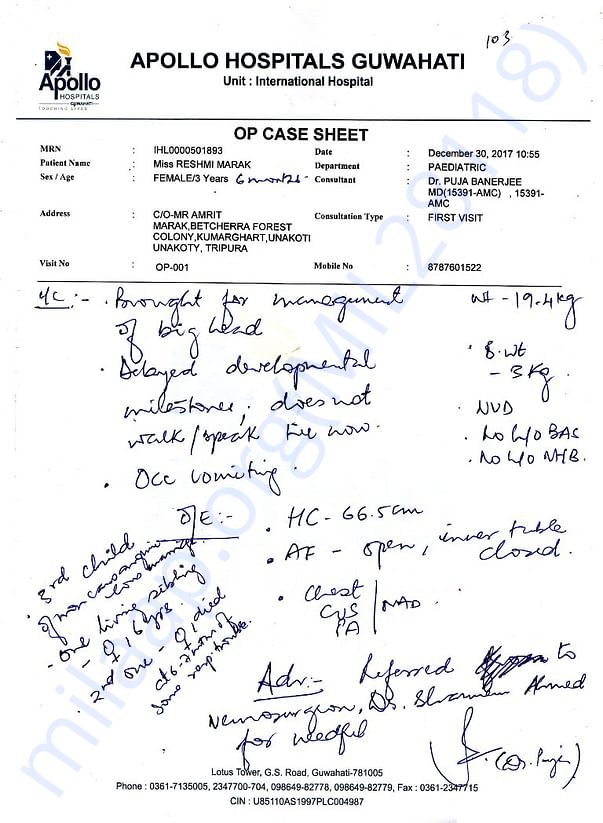 103
Apollo
HOSPITALS
GUWAHATI
TOUCHING LIVES
APOLLO HOSPITALS GUWAHATI
Unit : International Hospital
OP CASE SHEET
MRN : IHL0000501893 Date : December 30, 2017 10:55
Patient Name : Miss RESHMI MARAK Department : PAEDIATRIC
Sex / Age : FEMALE/3 Years 6 months Consultant : Dr. PUJA BANERJEE
MD(15391-AMC) , 15391-
AMC
Address : C/O-MR AMRIT Consultation Type : FIRST VISIT
MARAK,BETCHERRA FOREST
COLONY,KUMARGHART,UNAKOTI
UNAKOTY, TRIPURA
Visit No : OP-001 Mobile No : 8787601522
:- . Brought for management
of big head
wt - 19.4kg
. Delayed developmental
milestone, does not
walk/speak till now.
. Occ vomiting.
. B.wt
- 3kg.
. NVD
. No h/o BAS
. No h/o NHB.
O/E :-
. HC - 66.5cm
. AF - open, inner table
closed.
. Chest
CVS
PA
NAD.
. 3rd child
of non consanguin
- One living sibling
- ♀, 16 yrs.
2nd one - ♀, died
at 6-7 mon of
some resp trouble.
Adv:- Referred to
Neurosurgeon, Dr. Ahmed
for needful
(Dr. Puja)
Lotus Tower, G.S. Road, Guwahati-781005
Phone : 0361-7135005, 2347700-704, 098649-82778, 098649-82779, Fax : 0361-2347715
CIN : U85110AS1997PLC004987
milaap.org(MIL28118)